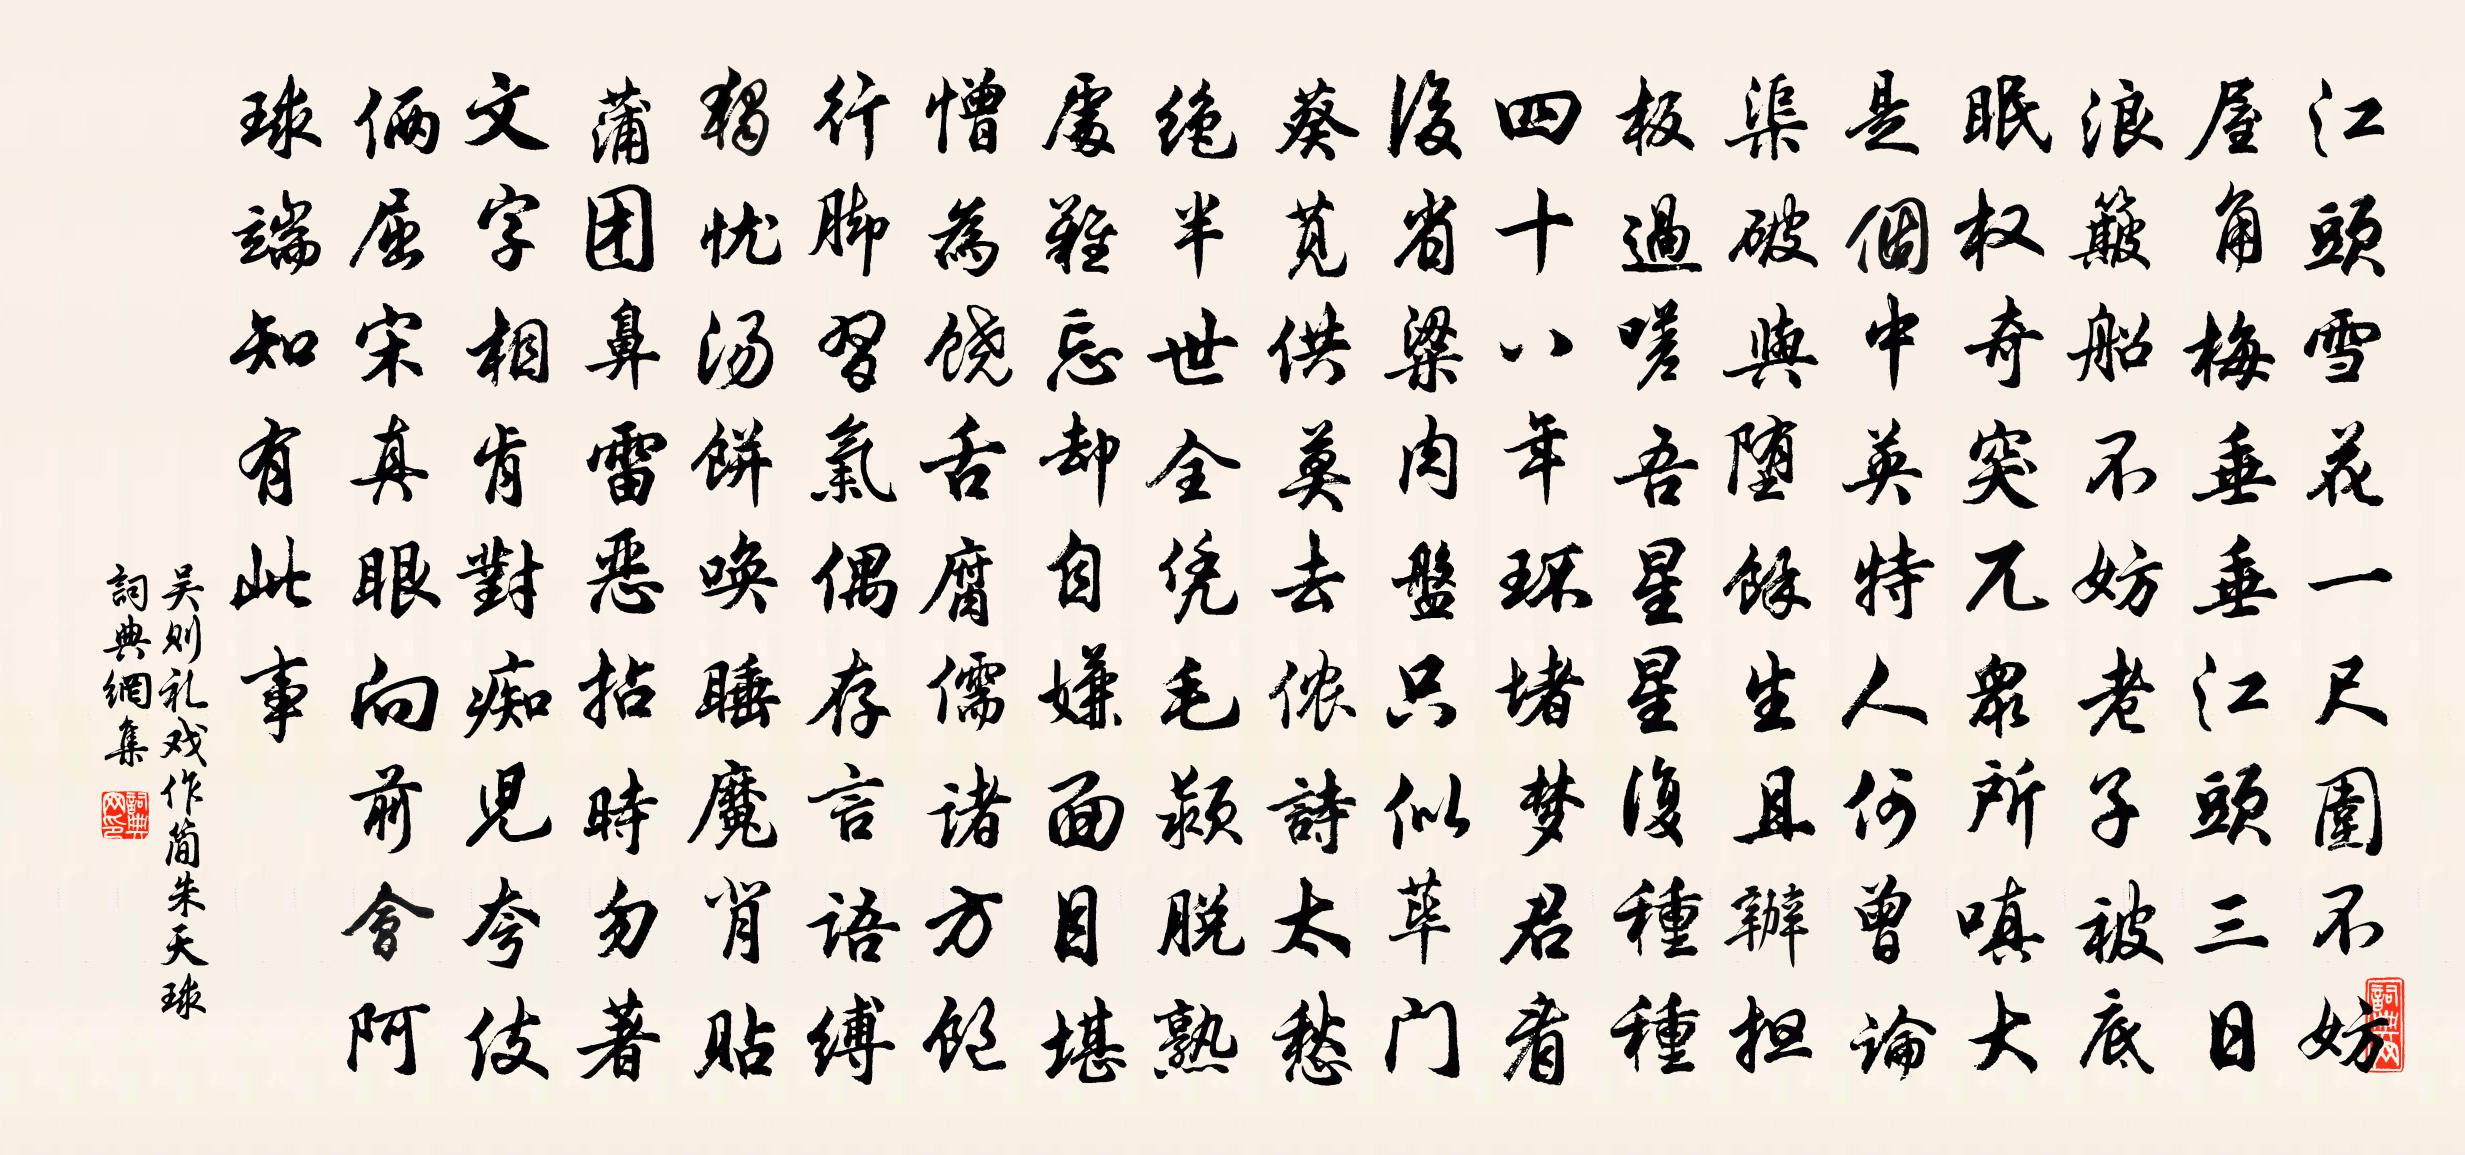 江頭雪花一尺圍不妨
屋角梅垂垂江頭三日
浪簸船不妨老子被底
眠权奇突兀眾所嗔大
是個中英特人何曾論
渠破與堕餘生且辦担
板過嗟吾星星復種種
四十八年环堵梦君看
後省粱肉盤只似荜门
葵苋供莫去侬詩太愁
绝半世全凭毛颖脱熟
處難忘却自嫌面目堪
憎為饶舌腐儒诸方飽
行脚習氣偶存言語缚
獨忧汤餅唤睡魔肖貼
蒲团鼻雷恶拈時勿著
文字相肯對痴児夸伎
俩屈宋真眼向前會阿
球端知有此事
吴则礼戏作简朱天球
詞典網集